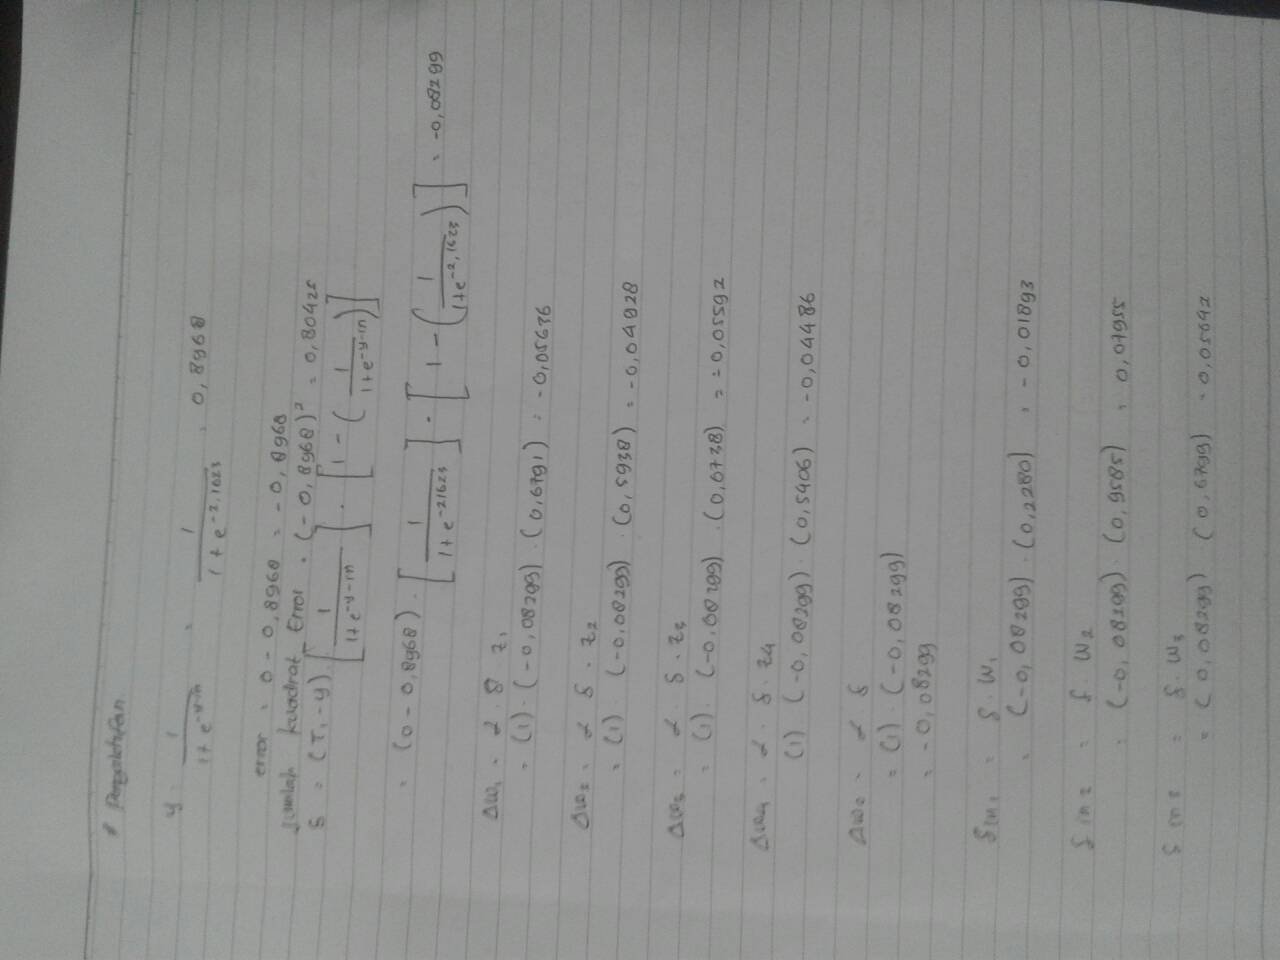 # Pengaktifan
y = 1 / (1 + e^-y-in) = 1 / (1 + e^-2,1623) = 0,8968
error = 0 - 0,8968 = -0,8968
Jumlah kuadrat Error = (-0,8968)² = 0,80425
δ = (T₁ - y) . [1 / (1 + e^-y-in)] . [1 - (1 / (1 + e^-y-in))]
= (0 - 0,8968) . [1 / (1 + e^-2,1623)] . [1 - (1 / (1 + e^-2,1623))] = -0,08299
Δw₁ = α . δ z₁
= (1) . (-0,08299) . (0,6791) = -0,05636
Δw₂ = α δ . z₂
= (1) . (-0,08299) (0,5938) = -0,04928
Δw₃ = α δ . z₃
= (1) . (-0,08299) . (0,6738) = -0,05592
Δw₄ = α . δ . z₄
(1) (-0,08299) . (0,5406) = -0,04486
Δw₀ = α δ
= (1) . (-0,08299)
= -0,08299
δin₁ = δ . w₁
= (-0,08299) . (0,2280) = -0,01893
δin₂ = δ . w₂
= (-0,08299) . (0,9585) = 0,07955
δin₃ = δ . w₃
= (0,08299) (0,6799) = 0,05642